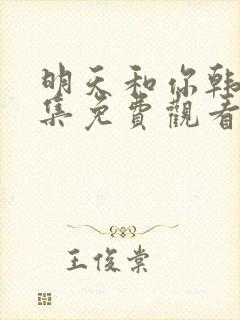 明天和你韩
集免費觀看
王俊棠